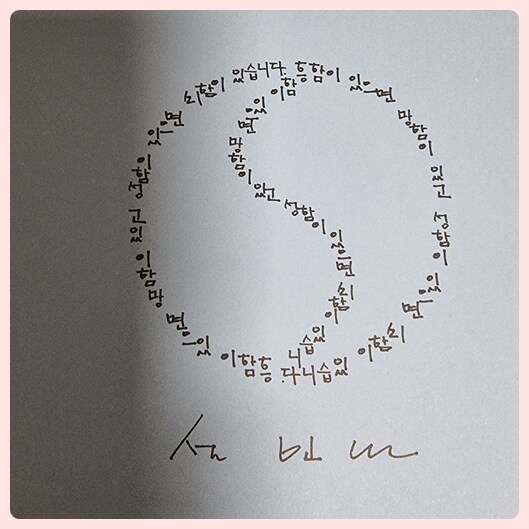 흥함이 있으면 망함이 있고 성함이 있으면 쇠함이 있습니다.
흥함이 있으면 망함이 있고 성함이 있으면 쇠함이 있습니다.
함이 있으면 망함이 있고 성함이 있으면 쇠함이 있습니